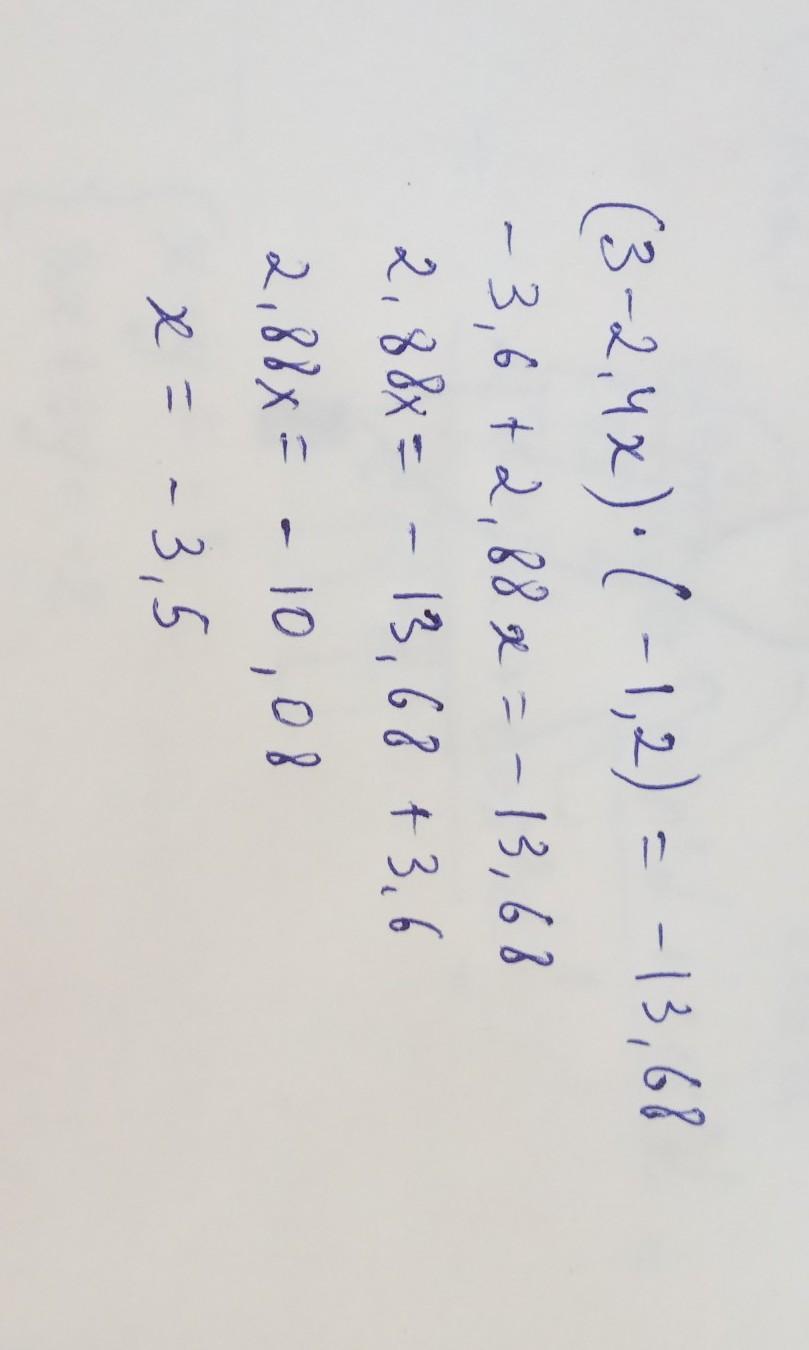 (3-2,4x)·(-1,2) = -13,68
-3,6 + 2,88x = -13,68
2,88x = -13,68 + 3,6
2,88x = -10,08
x = -3,5